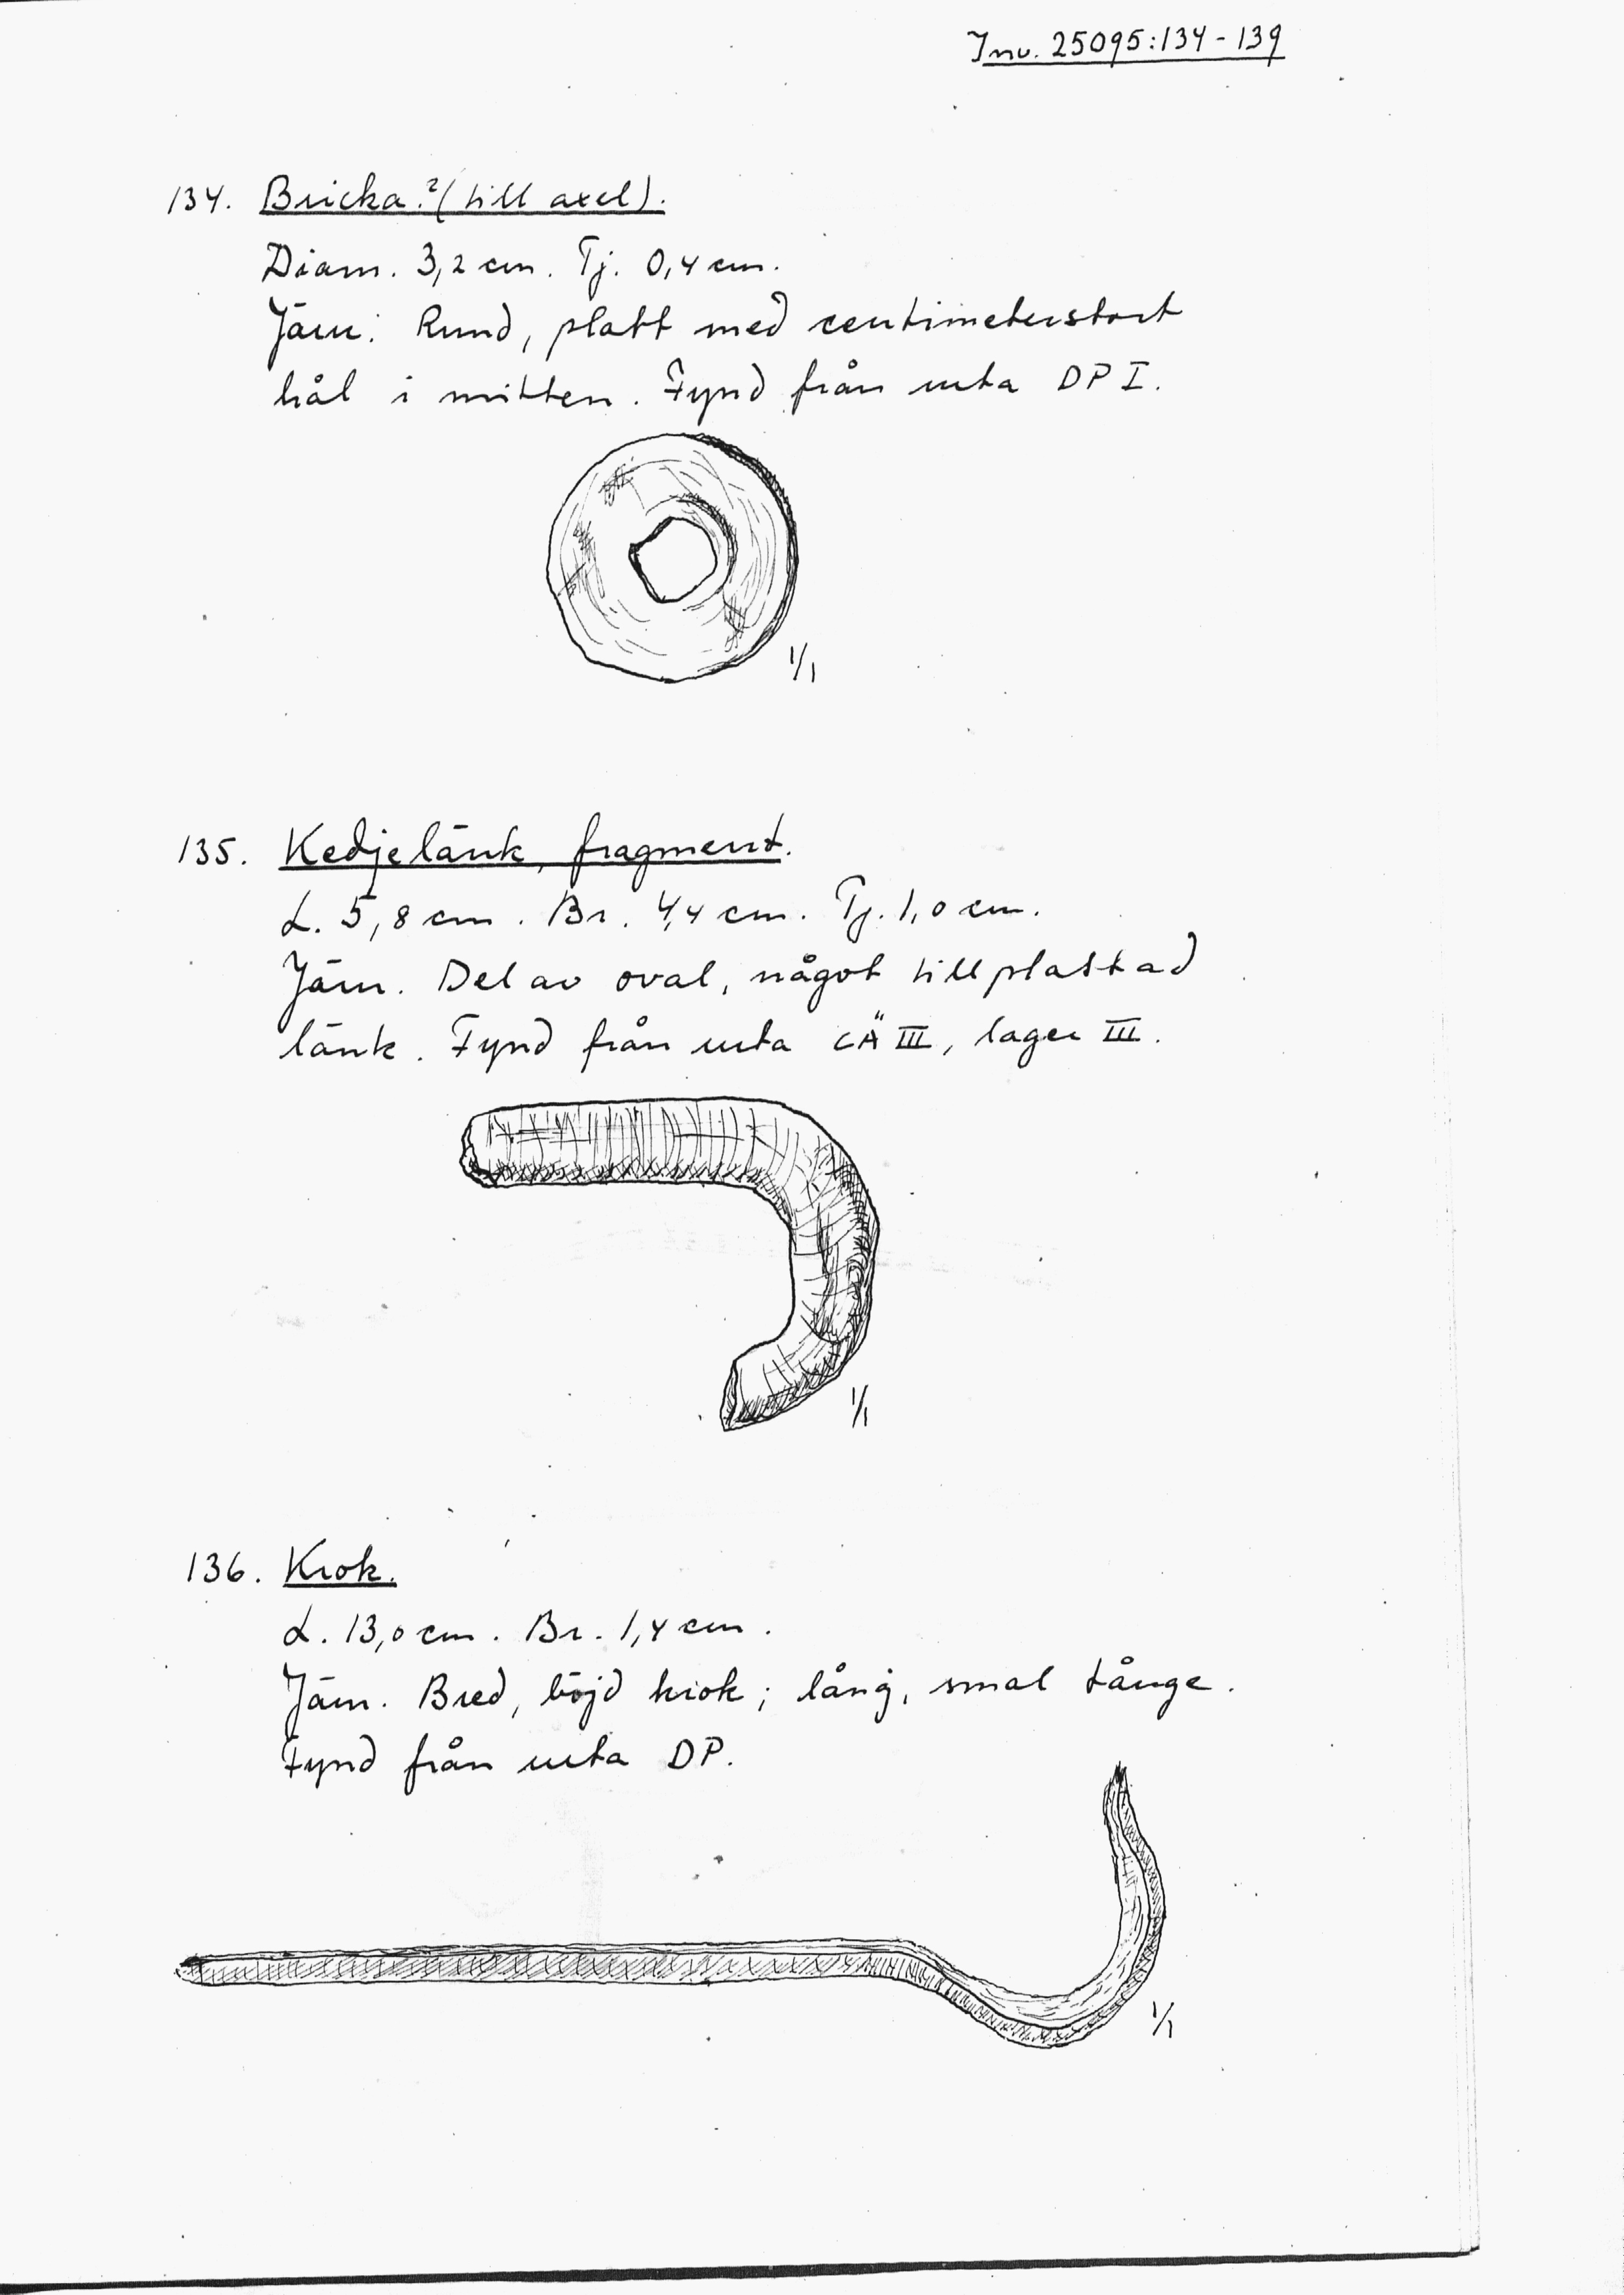 Inv. 25095:134-139
134. Bricka? (till axel).
Diam. 3,2 cm. Tj. 0,4 cm.
Järn. Rund, platt med centimeterstort
hål i mitten. Fynd från ruta DP I.
1/1
135. Kedjelänk, fragment.
L. 5,8 cm. Br. 4,4 cm. Tj. 1,0 cm.
Järn. Del av oval, något tillplattad
länk. Fynd från ruta CÄ III, lager III.
1/1
136. Krok.
L. 13,0 cm. Br. 1,4 cm.
Järn. Bred, böjd krok; lång, smal tånge.
Fynd från ruta DP.
1/1